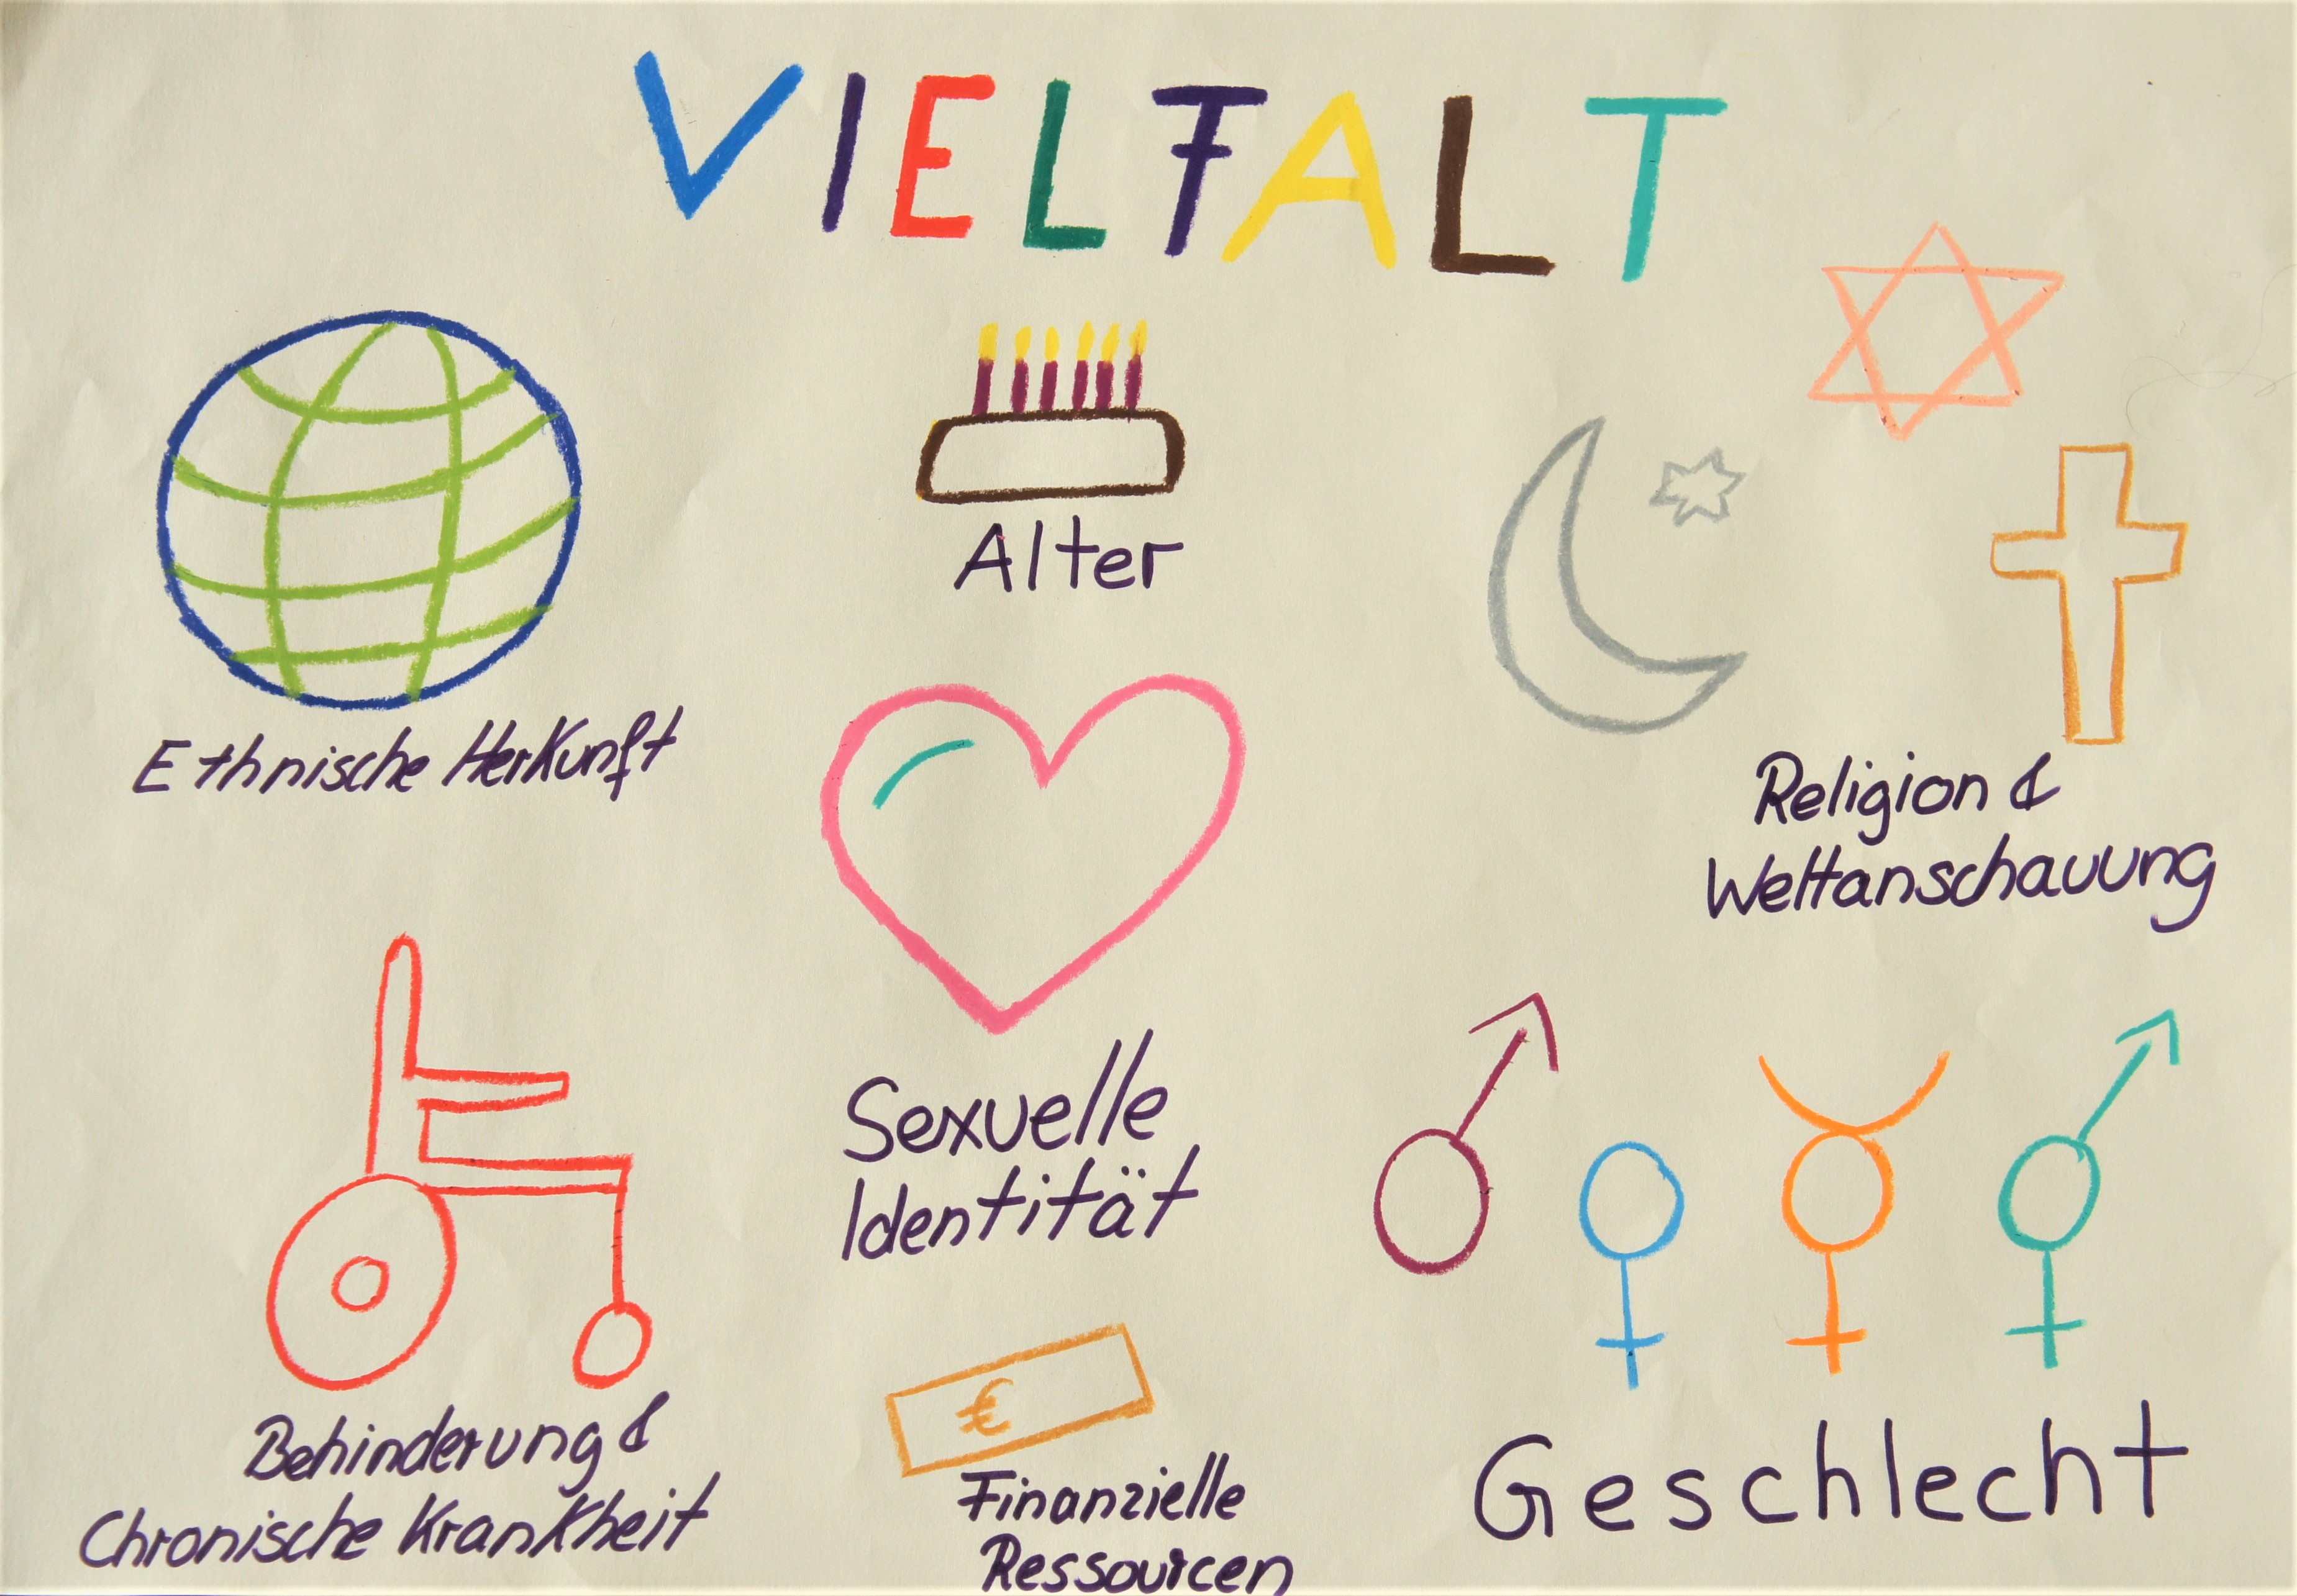 VIELFALT
Alter
Ethnische Herkunft
Religion &
Weltanschauung
Sexuelle
Identität
€
Behinderung &
Chronische Krankheit
Finanzielle
Ressourcen
Geschlecht